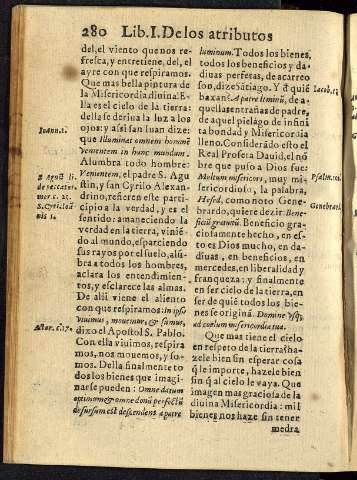 280 Lib. I. De los atributos
del, el viento que nos re-
fresca, y entretiene, del, el
ayre con que respiramos.
Que mas bella pintura de
la Misericordia diuina: E-
lla es el cielo de la tierra:
della se deriua la luz a los
ojos: y asi san Iuan dize:
que Illuminat omnem hominẽ
venientem in hunc mundum.
Alumbra todo hombre:
Venientem, el padre S. Agu
stin, y san Cyrilo Alexan-
drino, refieren este parti-
cipio a la verdad, y es el
sentido: amaneciendo la
verdad en la tierra, viniẽ-
do al mundo, esparziendo
sus rayos por el suelo, alũ-
bra a todos los hombres,
aclara los entendimien-
tos, y esclarece las almas.
De alli viene el aliento
con que respiramos: in ipso
viuimus, mouemur, & sumus,
dixo el Apostol S. Pablo.
Con ella viuimos, respira
mos, nos mouemos, y so-
mos. Della finalmente to
dos los bienes que imagi-
narse pueden: Omne datum
optimum & omne donũ perfectũ
desursum est descendens a patre
Ioann. 1.
D. August. li.
de peccator.
mer. c. 25.
S. Cyril. Ioã
nis 1.
Actor. c. 17.
luminum. Todos los bienes,
todos los beneficios y da-
diuas perfetas, de acarreo
son, dize Satiago. Y de quiẽ
baxan? A patre luminũ, de a-
quellas entrañas de padre,
de aquel pielago de infini
ta bondad y Misericordia
lleno. Considerado esto el
Real Profeta Dauid, el nõ
bre que puso a Dios fue:
Multum misericors, muy mi-
sericordioso, la palabra,
Hesed, como noto Gene-
brardo, quiere dezir. Bene-
ficũ gratuitũ. Beneficio gra-
ciosamente hecho, en es-
to es Dios mucho, en da-
diuas, en beneficios, en
mercedes, en liberalidad y
franqueza: y finalmente
en ser cielo de la tierra, en
ser de quiẽ todos los bie-
nes se originã. Domine vsq;
ad cœlum misericordia tua.
Que mas tiene el cielo
en respeto de la tierra? ha-
zele bien sin esperar cosa
q̃ le importe, hazele bien
sin q̃ al cielo le vaya. Que
imagen mas graciosa de la
diuina Misericordia: mil
bienes nos haze sin tener
medra
Iacob. 1.
Genebrar.